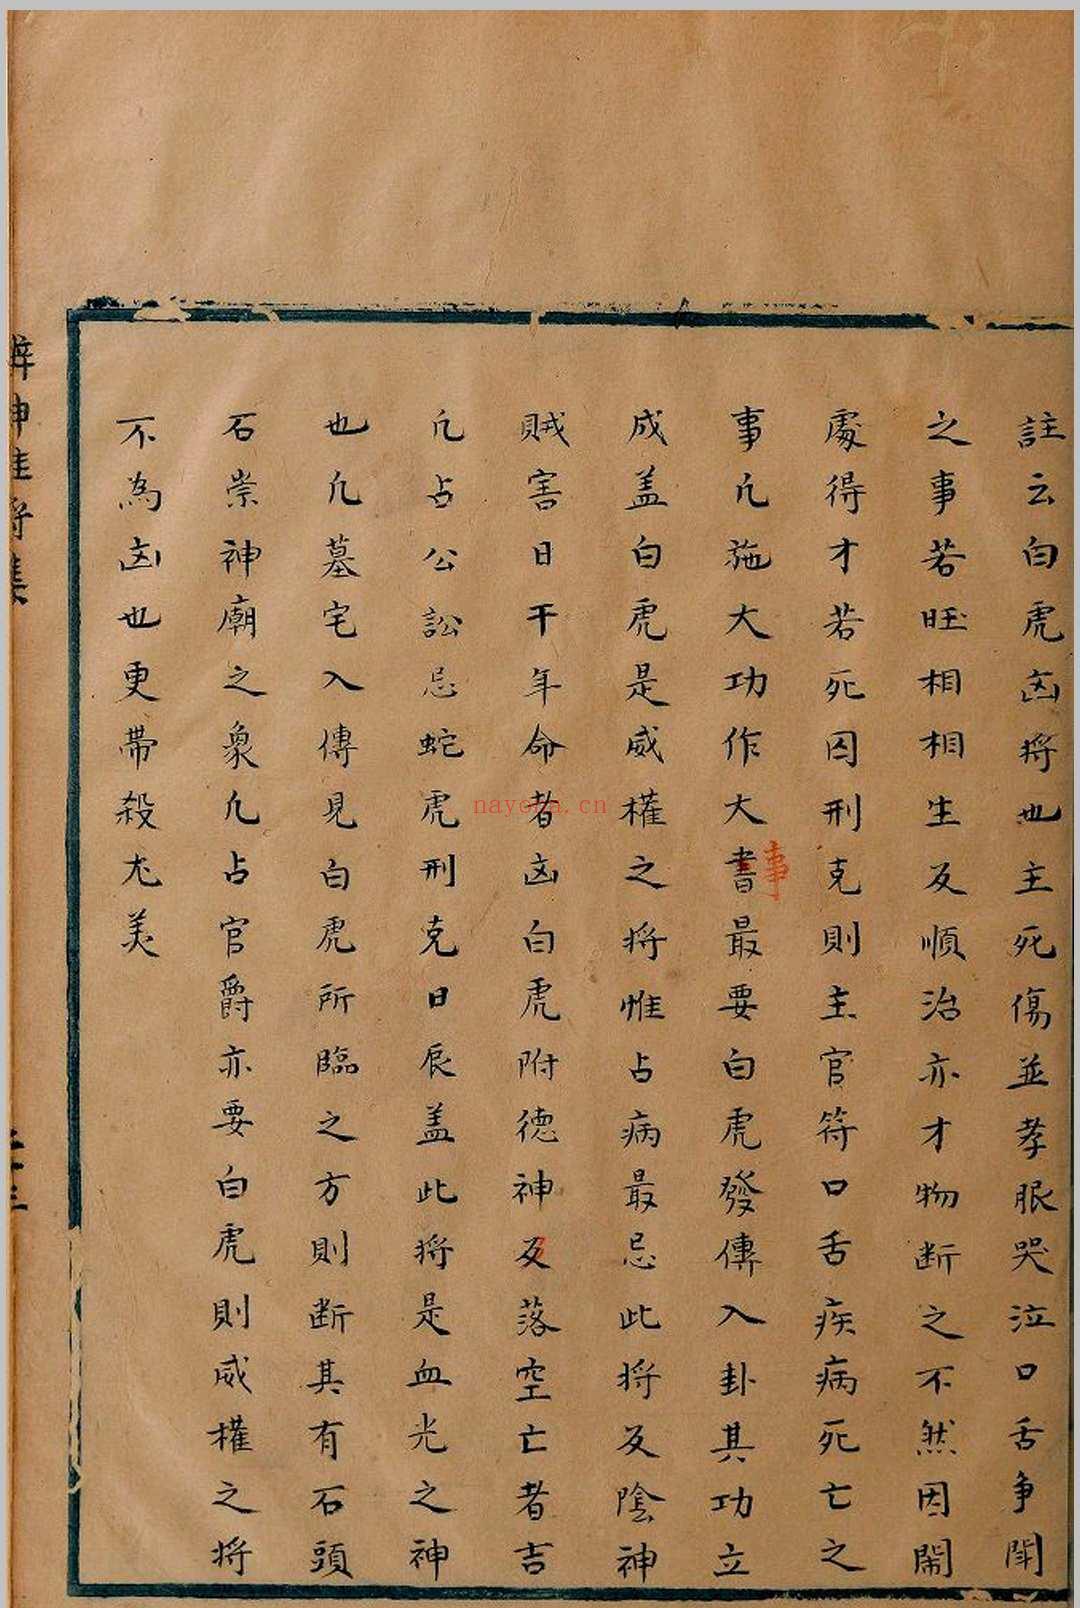 註云白虎凶將也主死傷並孝眼哭泣口舌争閗
之事若旺相相生反順治亦才物断之不然因閙
處得才若死囚刑克則主官符口舌疾病死亡之
事凢施大功作大書最要白虎發傳入卦其功立
事
成盖白虎是威權之将惟占病最忌此将及陰神
賊害日干年命者凶白虎附德神及落空亡者吉
凢占公訟忌蛇虎刑克日辰盖此将是血光之神
也凢墓宅入傳見白虎所臨之方則断其有石頭
石崇神廟之象凢占官爵亦要白虎則威權之将
不為凶也更帶殺尤美
神
將集
nayona.cn